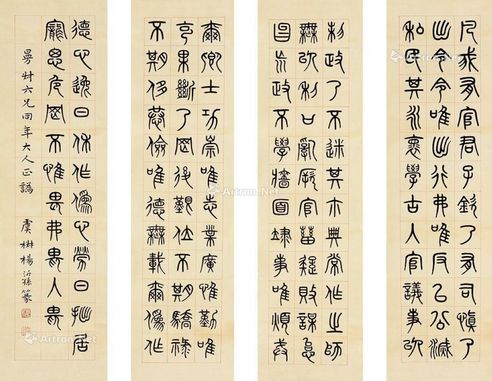 凡我有官君子欽乃有司慎乃
出令令出唯行弗唯反㠯公滅
私民其允褱學古入官議事㠯
制政乃不迷其爾典常作之師
無㠯利口亂厥官蓄疑敗謀怠
忽荒政不學牆面䇐事唯煩戒
爾卿士功崇惟志業廣惟勤唯
克果斷乃罔後艱位不期驕祿
不期侈恭儉唯德無載爾偽作
德心逸日休作偽心勞日拙居
寵思危罔不惟畏弗畏入畏
叔六兄同年大人正譌 虞樹楊沂孫篆
Artron.Net
Artron.Net
Artron.Net
Artron.Net